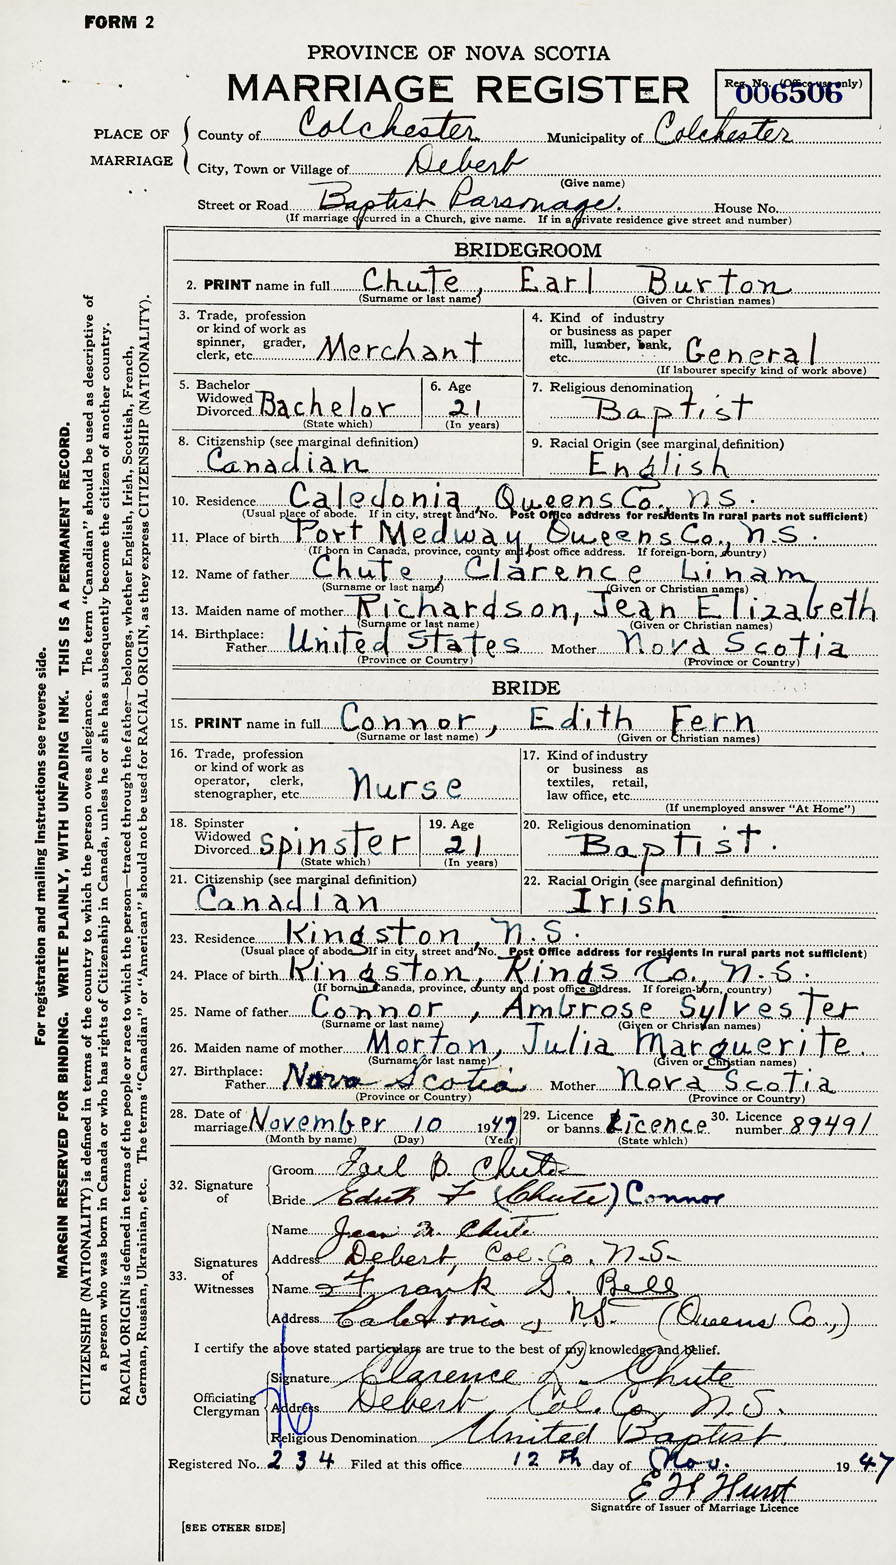 FORM 2
PROVINCE OF NOVA SCOTIA
MARRIAGE REGISTER
Reg. No. (Office use only)
006506
PLACE OF MARRIAGE
County of Colchester Municipality of Colchester
City, Town or Village of Debert
(Give name)
Street or Road Baptist Parsonage. House No.
(If marriage occurred in a Church, give name. If in a private residence give street and number)
BRIDEGROOM
2. PRINT name in full Chute, Earl Burton
(Surname or last name) (Given or Christian names)
3. Trade, profession
or kind of work as
spinner, grader,
clerk, etc. Merchant
4. Kind of industry
or business as paper
mill, lumber, bank,
etc. General
(If labourer specify kind of work above)
5. Bachelor
Widowed
Divorced Bachelor
(State which)
6. Age
21
(In years)
7. Religious denomination
Baptist
8. Citizenship (see marginal definition)
Canadian
9. Racial Origin (see marginal definition)
English
10. Residence Caledonia, Queens Co., N.S.
(Usual place of abode. If in city, street and No. Post Office address for residents in rural parts not sufficient)
11. Place of birth Port Medway, Queens Co., N.S.
(If born in Canada, province, county and post office address. If foreign-born, country)
12. Name of father Chute, Clarence Linam
(Surname or last name) (Given or Christian names)
13. Maiden name of mother Richardson, Jean Elizabeth
(Surname or last name) (Given or Christian names)
14. Birthplace:
Father United States Mother Nova Scotia
(Province or Country) (Province or Country)
BRIDE
15. PRINT name in full Connor, Edith Fern
(Surname or last name) (Given or Christian names)
16. Trade, profession
or kind of work as
operator, clerk,
stenographer, etc. Nurse
17. Kind of industry
or business as
textiles, retail,
law office, etc.
(If unemployed answer "At Home")
18. Spinster
Widowed
Divorced Spinster
(State which)
19. Age
21
(In years)
20. Religious denomination
Baptist.
21. Citizenship (see marginal definition)
Canadian
22. Racial Origin (see marginal definition)
Irish
23. Residence Kingston, N.S.
(Usual place of abode. If in city, street and No. Post Office address for residents in rural parts not sufficient)
24. Place of birth Kingston, Kings Co., N.S.
(If born in Canada, province, county and post office address. If foreign-born, country)
25. Name of father Connor, Ambrose Sylvester
(Surname or last name) (Given or Christian names)
26. Maiden name of mother Morton, Julia Marguerite.
(Surname or last name) (Given or Christian names)
27. Birthplace:
Father Nova Scotia Mother Nova Scotia
(Province or Country) (Province or Country)
28. Date of
marriage November 10 1947
(Month by name) (Day) (Year)
29. Licence
or banns Licence
(State which)
30. Licence
number 89491
32. Signature of
Groom Earl B. Chute
Bride Edith F (Chute) Connor
33. Signatures of Witnesses
Name Jean M. Chute
Address Debert, Col. Co. N.S.
Name Frank G. Bell
Address Caledonia, N.S. (Queens Co.,)
I certify the above stated particulars are true to the best of my knowledge and belief.
Officiating Clergyman
Signature Clarence L. Chute
Address Debert, Col. Co., N.S.
Religious Denomination United Baptist.
Registered No. 234 Filed at this office 12th day of Nov. 1947
E H Hunt
Signature of Issuer of Marriage Licence
[SEE OTHER SIDE]
For registration and mailing instructions see reverse side.
MARGIN RESERVED FOR BINDING. WRITE PLAINLY, WITH UNFADING INK. THIS IS A PERMANENT RECORD.
CITIZENSHIP (NATIONALITY) is defined in terms of the country to which the person owes allegiance. The term "Canadian" should be used as descriptive of
a person who was born in Canada or who has rights of Citizenship in Canada, unless he or she has subsequently become the citizen of another country.
RACIAL ORIGIN is defined in terms of the people or race to which the person—traced through the father—belongs, whether English, Irish, Scottish, French,
German, Russian, Ukrainian, etc. The terms "Canadian" or "American" should not be used for RACIAL ORIGIN, as they express CITIZENSHIP (NATIONALITY).